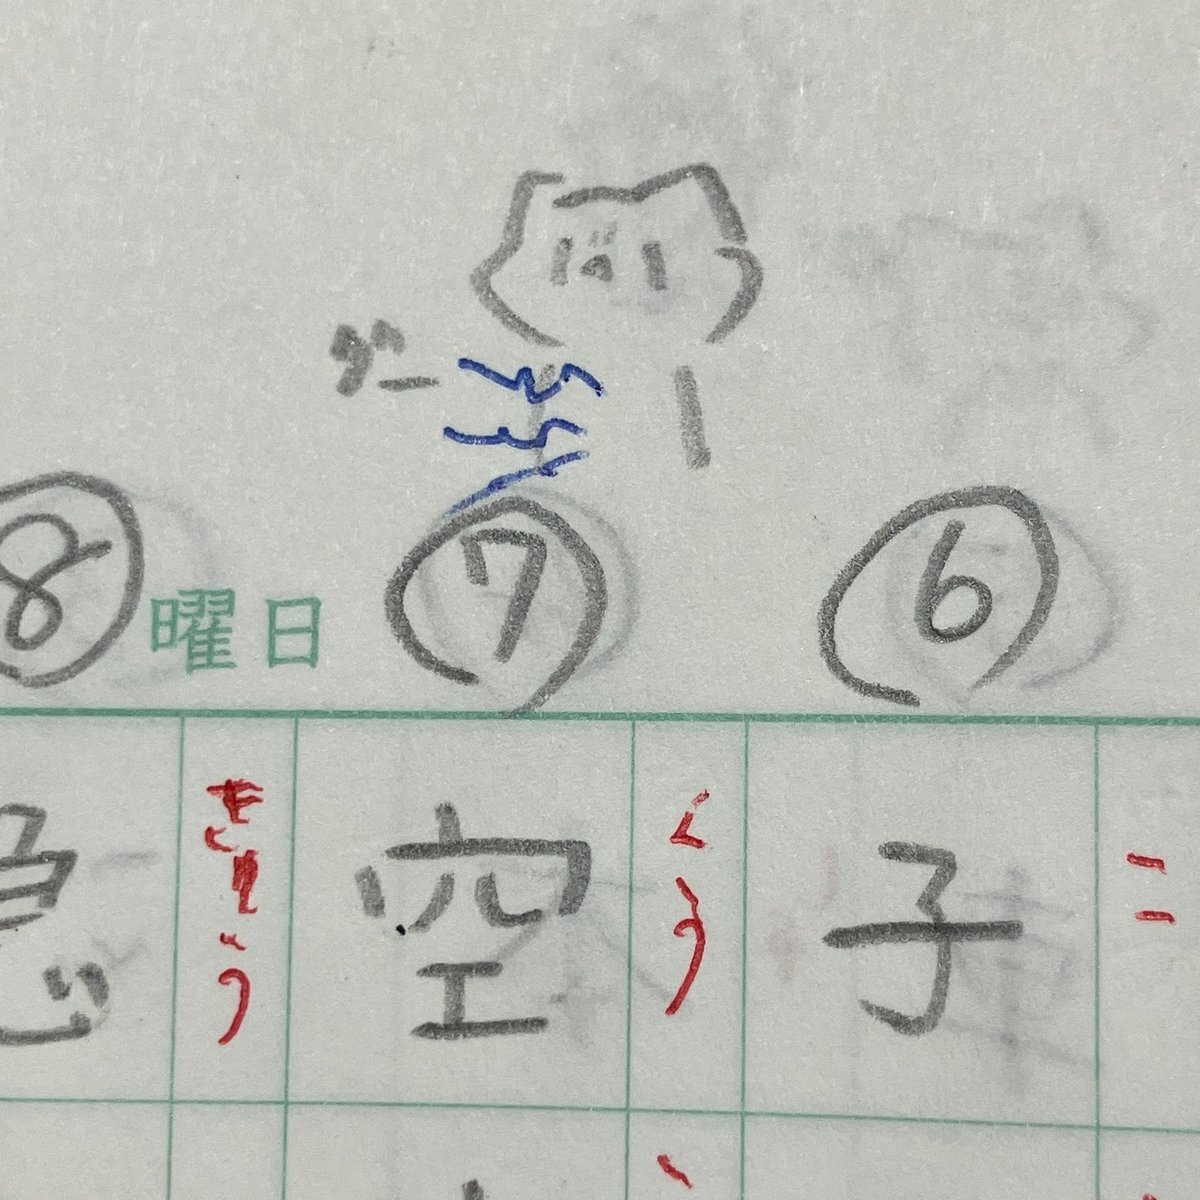 ダー
⑥
⑦
曜日
⑧
こ
子
くう
空
きゅう
急